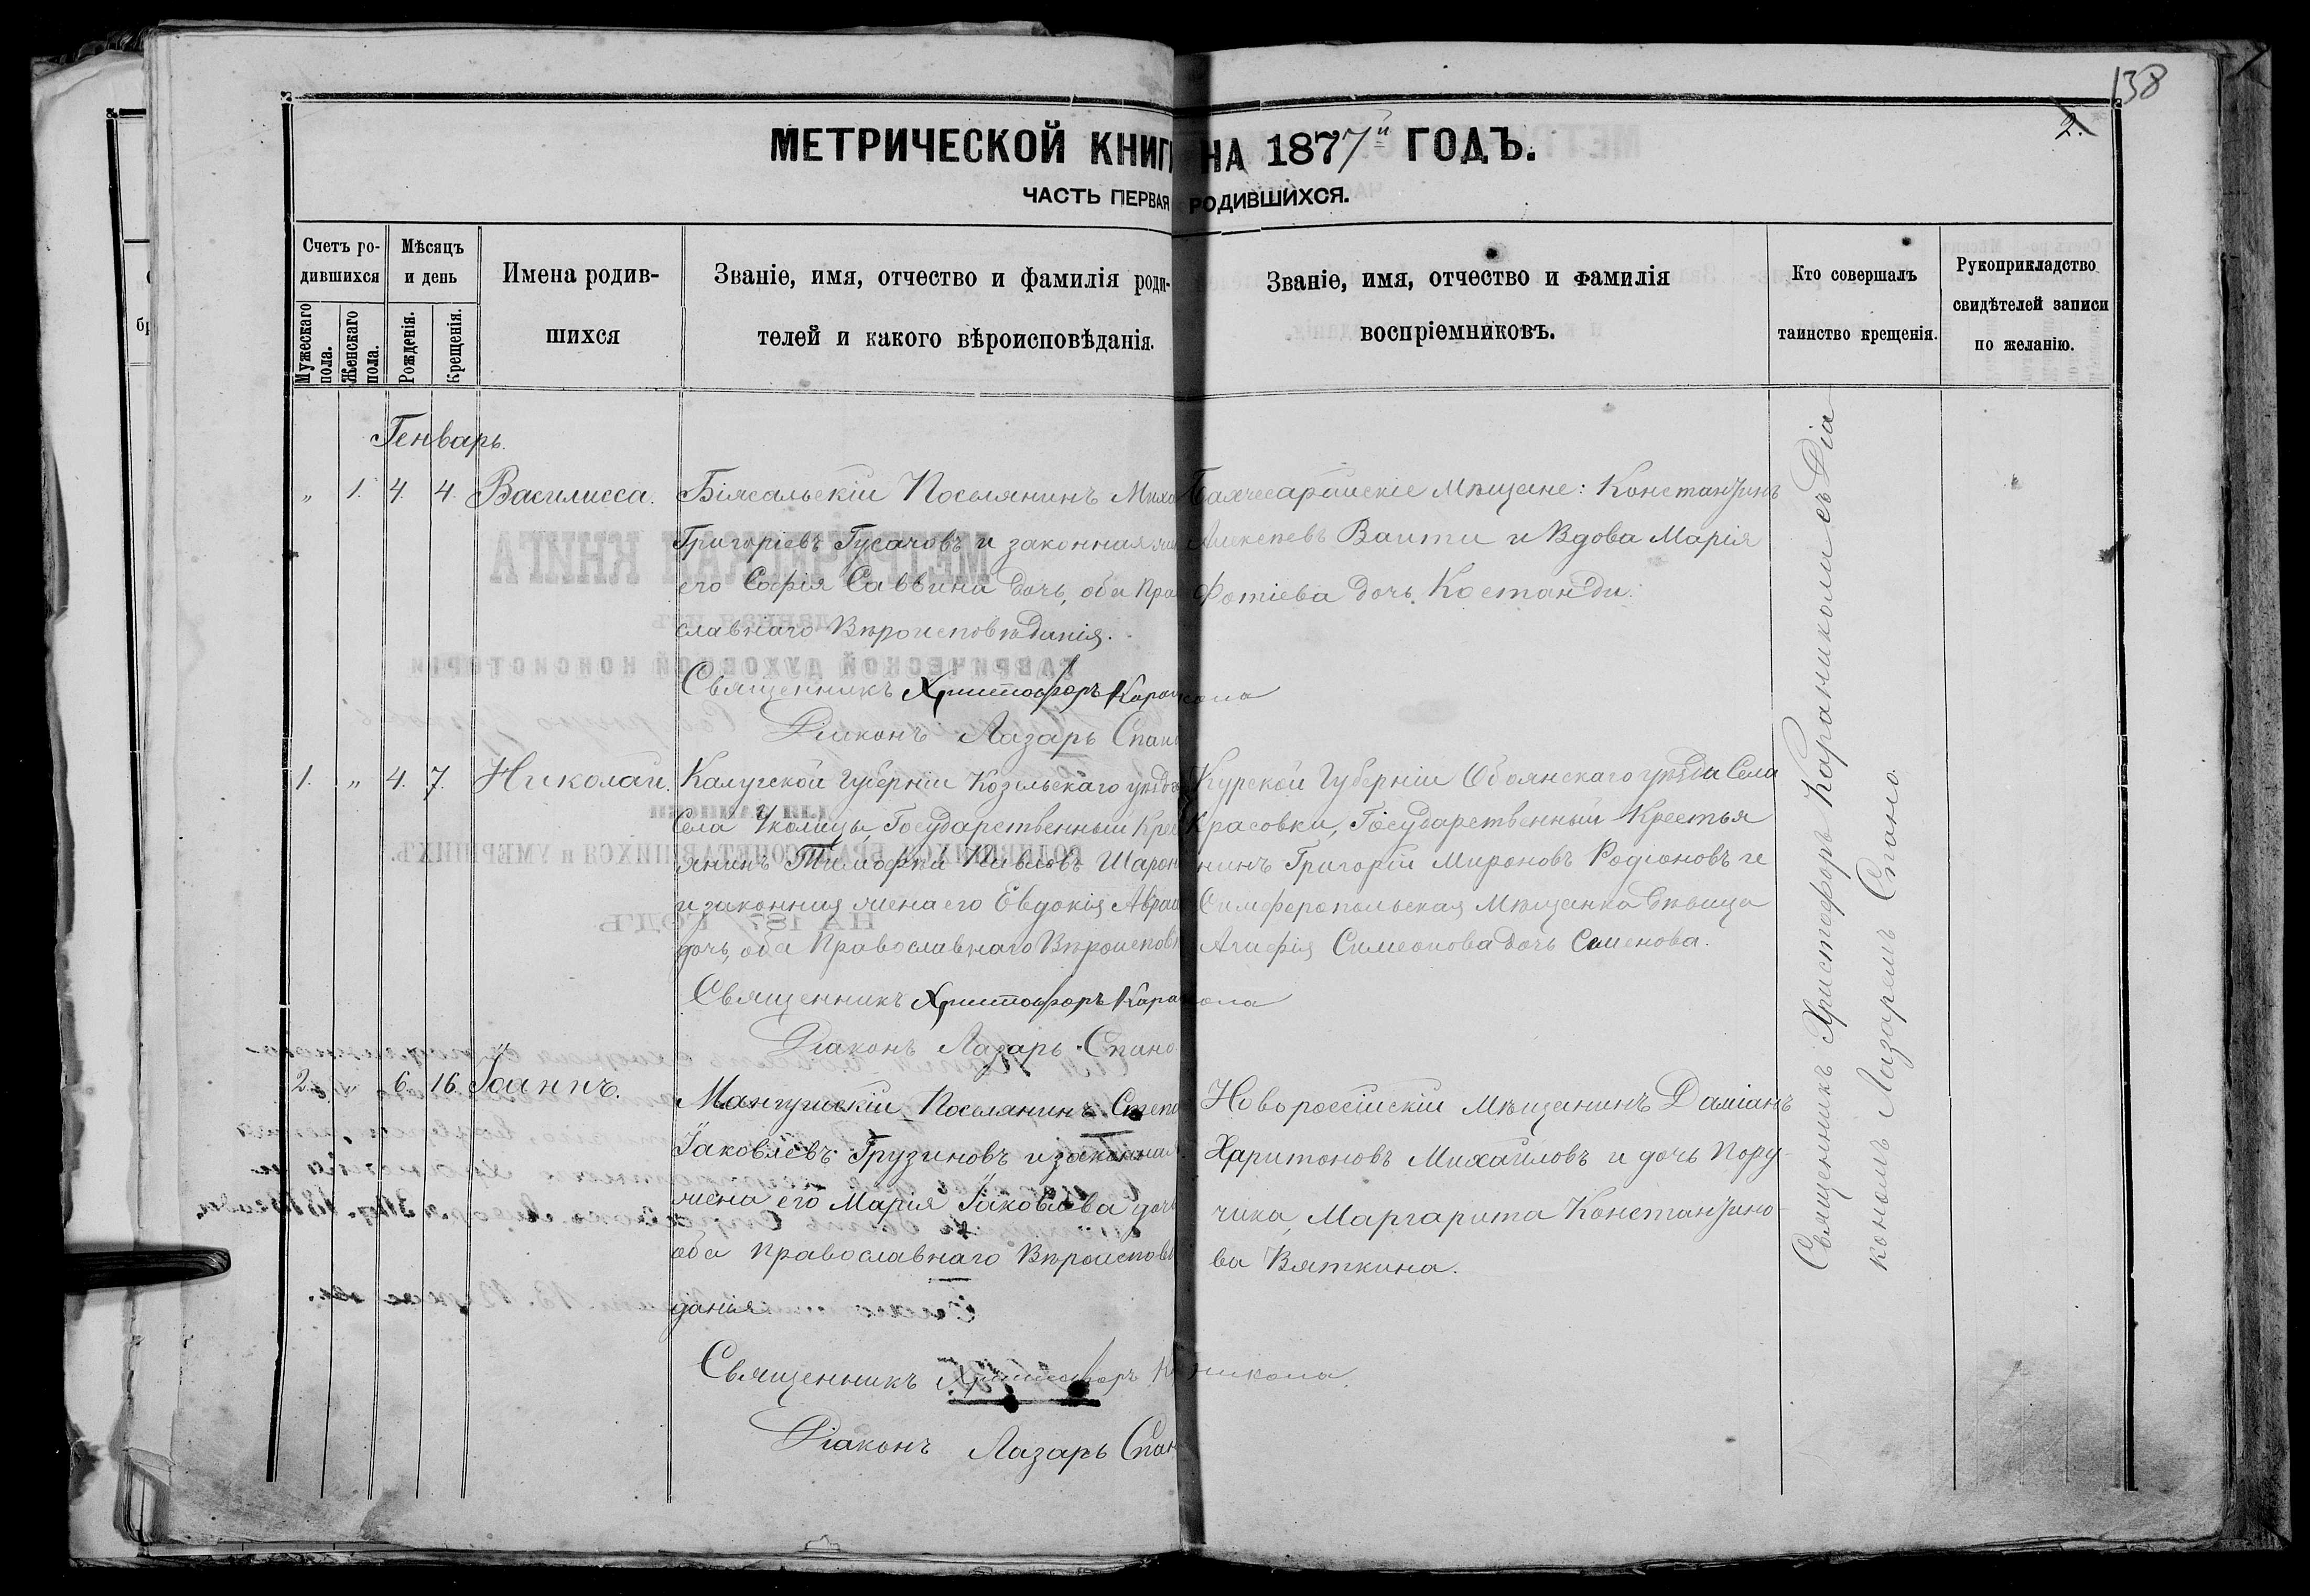 138
2.
МЕТРИЧЕСКОЙ КНИГИ НА 1877й ГОДЪ.
ЧАСТЬ ПЕРВАЯ РОДИВШИХСЯ.
Счетъ ро-
дившихся
Мужескаго пола.
Женскаго пола.
Мѣсяцъ
и день
Рожденія.
Крещенія.
Имена родив-
шихся
Званіе, имя, отчество и фамилія роди-
телей и какого вѣроисповѣданія.
Званіе, имя, отчество и фамилія
воспріемниковъ.
Кто совершалъ
таинство крещенія.
Рукоприкладство
свидѣтелей записи
по желанію.
Генварь.
" 1. 4. 4. Василисса.
Біясальскій Поселянинъ Миха
Григоріевъ Гусаковъ и законная
его Софія Саввина дочь, оба Пра
славнаго Вѣроисповѣданія.
Священникъ Христофоръ
Діаконъ Лазарь Спано
Бахчесарайскіе Мѣщане: Константинъ
Алексѣевъ и Вдова Марія
Фотіева дочь Костанди.
1. " 4. 7. Николай.
Калугской Губерніи Козельскаго уѣзда
Села Уколицы Государственный Крес
янинъ Тимофѣй Павловъ Шарон
и законная жена его Евдокія Авраа
дочь, оба Православнаго Вѣроисповѣ
Священникъ Христофоръ
Діаконъ Лазарь Спано
Курской Губерніи Обоянскаго уѣзда Села
Красовки, Государственный Крестья
нинъ Григорій Мироновъ Родіоновъ и
Симферопольская Мѣщанка Дѣвица
Агафія Симеонова дочь Семенова.
2. " 6. 16. Іоаннъ.
Мангушскій Поселянинъ Степа
Іаковлевъ Грузиновъ и законная
жена его Марія Іаковлева дочь
оба Православнаго Вѣроисповѣ
данія
Священникъ Христофоръ
Діаконъ Лазарь Спан
Новороссійскій Мѣщанинъ Даміанъ
Харитоновъ Михайловъ и дочь Пору-
чика, Маргарита Константино-
ва Вяткина.
Священникъ Христофоръ Караниколи съ Діа
кономъ Лазаремъ Спано.